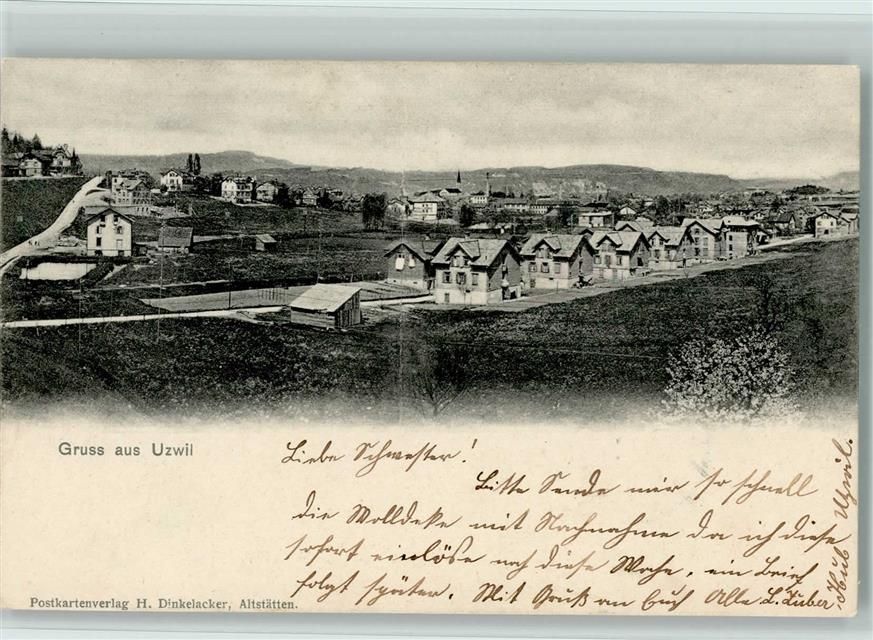 Gruss aus Uzwil
Liebe Schwester!
Bitte Sende mir so schnell
die Wolldeke mit Nachnahme da ich diese
sofort einlöse noch diese Woche, ein Brief
folgt später. Mit Gruß an Euch Alle
Uzwil.
Postkartenverlag H. Dinkelacker, Altstätten.